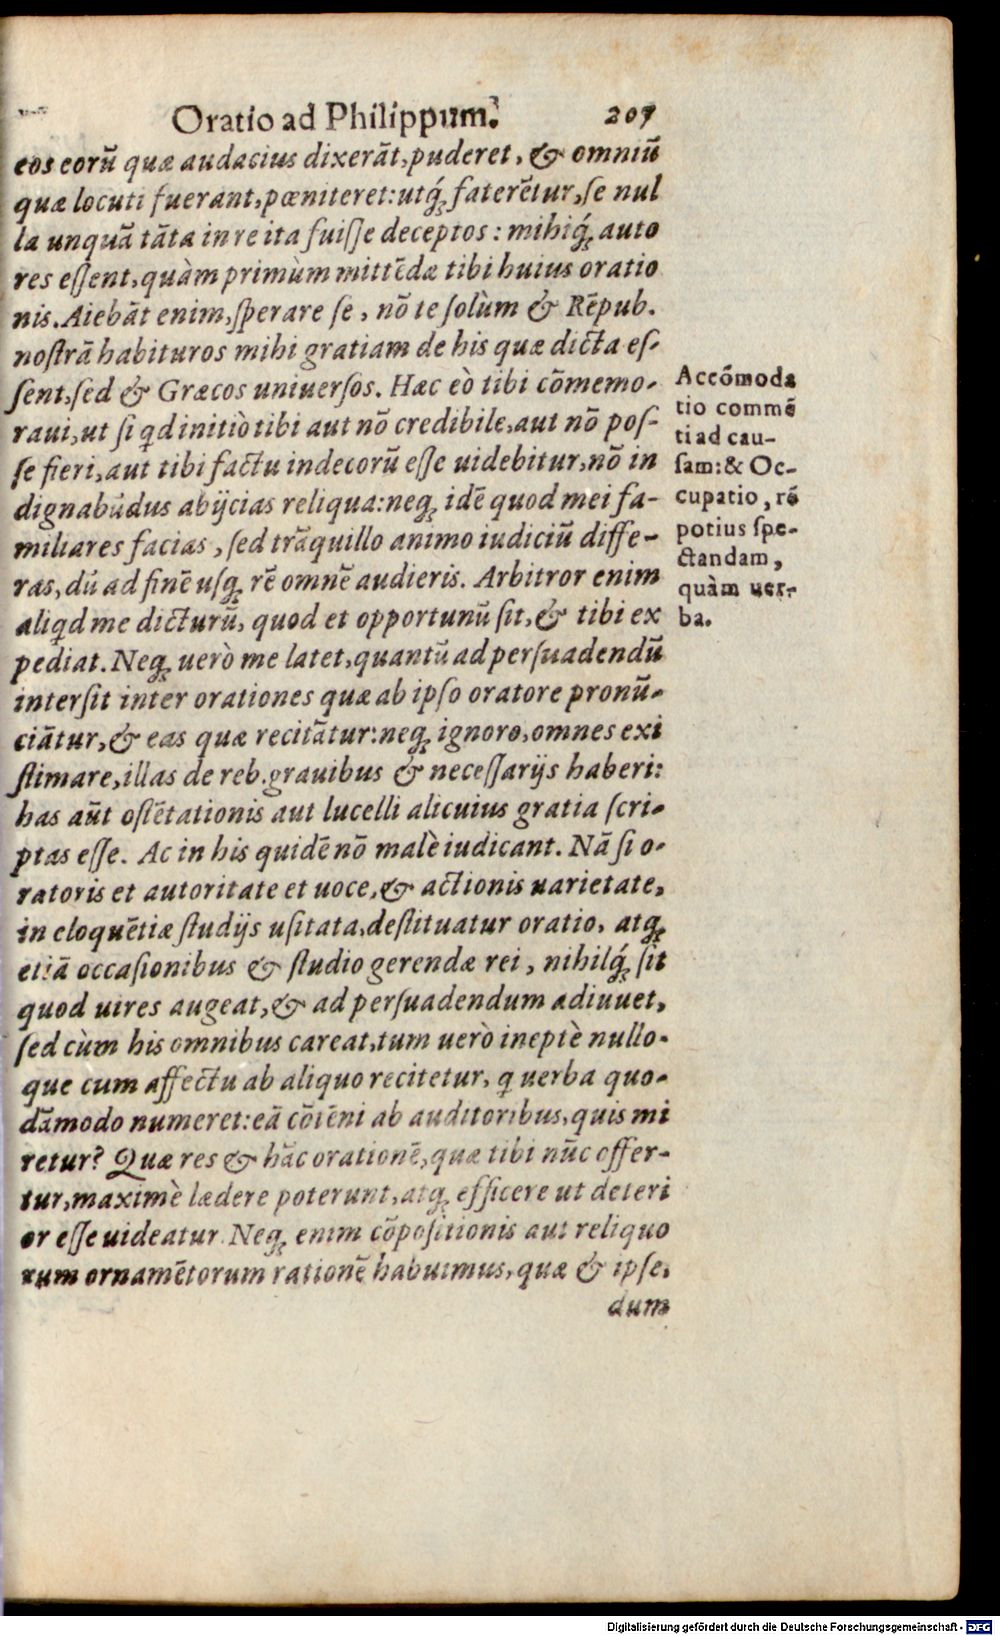 Oratio ad Philippum. 207
eos eorū quæ audacius dixerāt, puderet, & omniū
quæ locuti fuerant, pœniteret: utq́; faterētur, se nul
la unquā tāta in re ita fuisse deceptos: mihiq́; auto
res essent, quàm primùm mittēdæ tibi huius oratio
nis. Aiebāt enim, sperare se, nō te solùm & Rēpub.
nostrā habituros mihi gratiam de his quæ dicta es-
sent, sed & Græcos uniuersos. Hæc eò tibi cōmemo-
raui, ut si qd initiò tibi aut nō credibile, aut nō pos-
se fieri, aut tibi factu indecorū esse uidebitur, nō in
dignabūdus abijcias reliqua: neq; idē quod mei fa-
miliares facias, sed trāquillo animo iudiciū diffe-
ras, dū ad finē usq; rē omnē audieris. Arbitror enim
aliqd me dicturū, quod et opportunū sit, & tibi ex
pediat. Neq; uerò me latet, quantū ad persuadendū
intersit inter orationes quæ ab ipso oratore pronū-
ciātur, & eas quæ recitātur: neq; ignoro, omnes exi
stimare, illas de reb. grauibus & necessarijs haberi:
has aūt ostētationis aut lucelli alicuius gratia scri-
ptas esse. Ac in his quidē nō malè iudicant. Nā si o-
ratoris et autoritate et uoce, & actionis uarietate,
in eloquētiæ studijs usitata, destituatur oratio, atq;
etiā occasionibus & studio gerendæ rei, nihilq́; sit
quod uires augeat, & ad persuadendum adiuuet,
sed cùm his omnibus careat, tum uerò ineptè nullo-
que cum affectu ab aliquo recitetur, q uerba quo-
dāmodo numeret: eā cōtēni ab auditoribus, quis mi
retur? Quæ res & hāc orationē, quæ tibi nūc offer-
tur, maximè lædere poterunt, atq; efficere ut deteri
or esse uideatur. Neq; enim cōpositionis aut reliquo
rum ornamētorum rationē habuimus, quæ & ipse,
dum
Accōmoda
tio commē
ti ad cau-
sam: & Oc-
cupatio, rē
potius spe-
ctandam,
quàm uer-
ba.
Digitalisierung gefördert durch die Deutsche Forschungsgemeinschaft - DFG